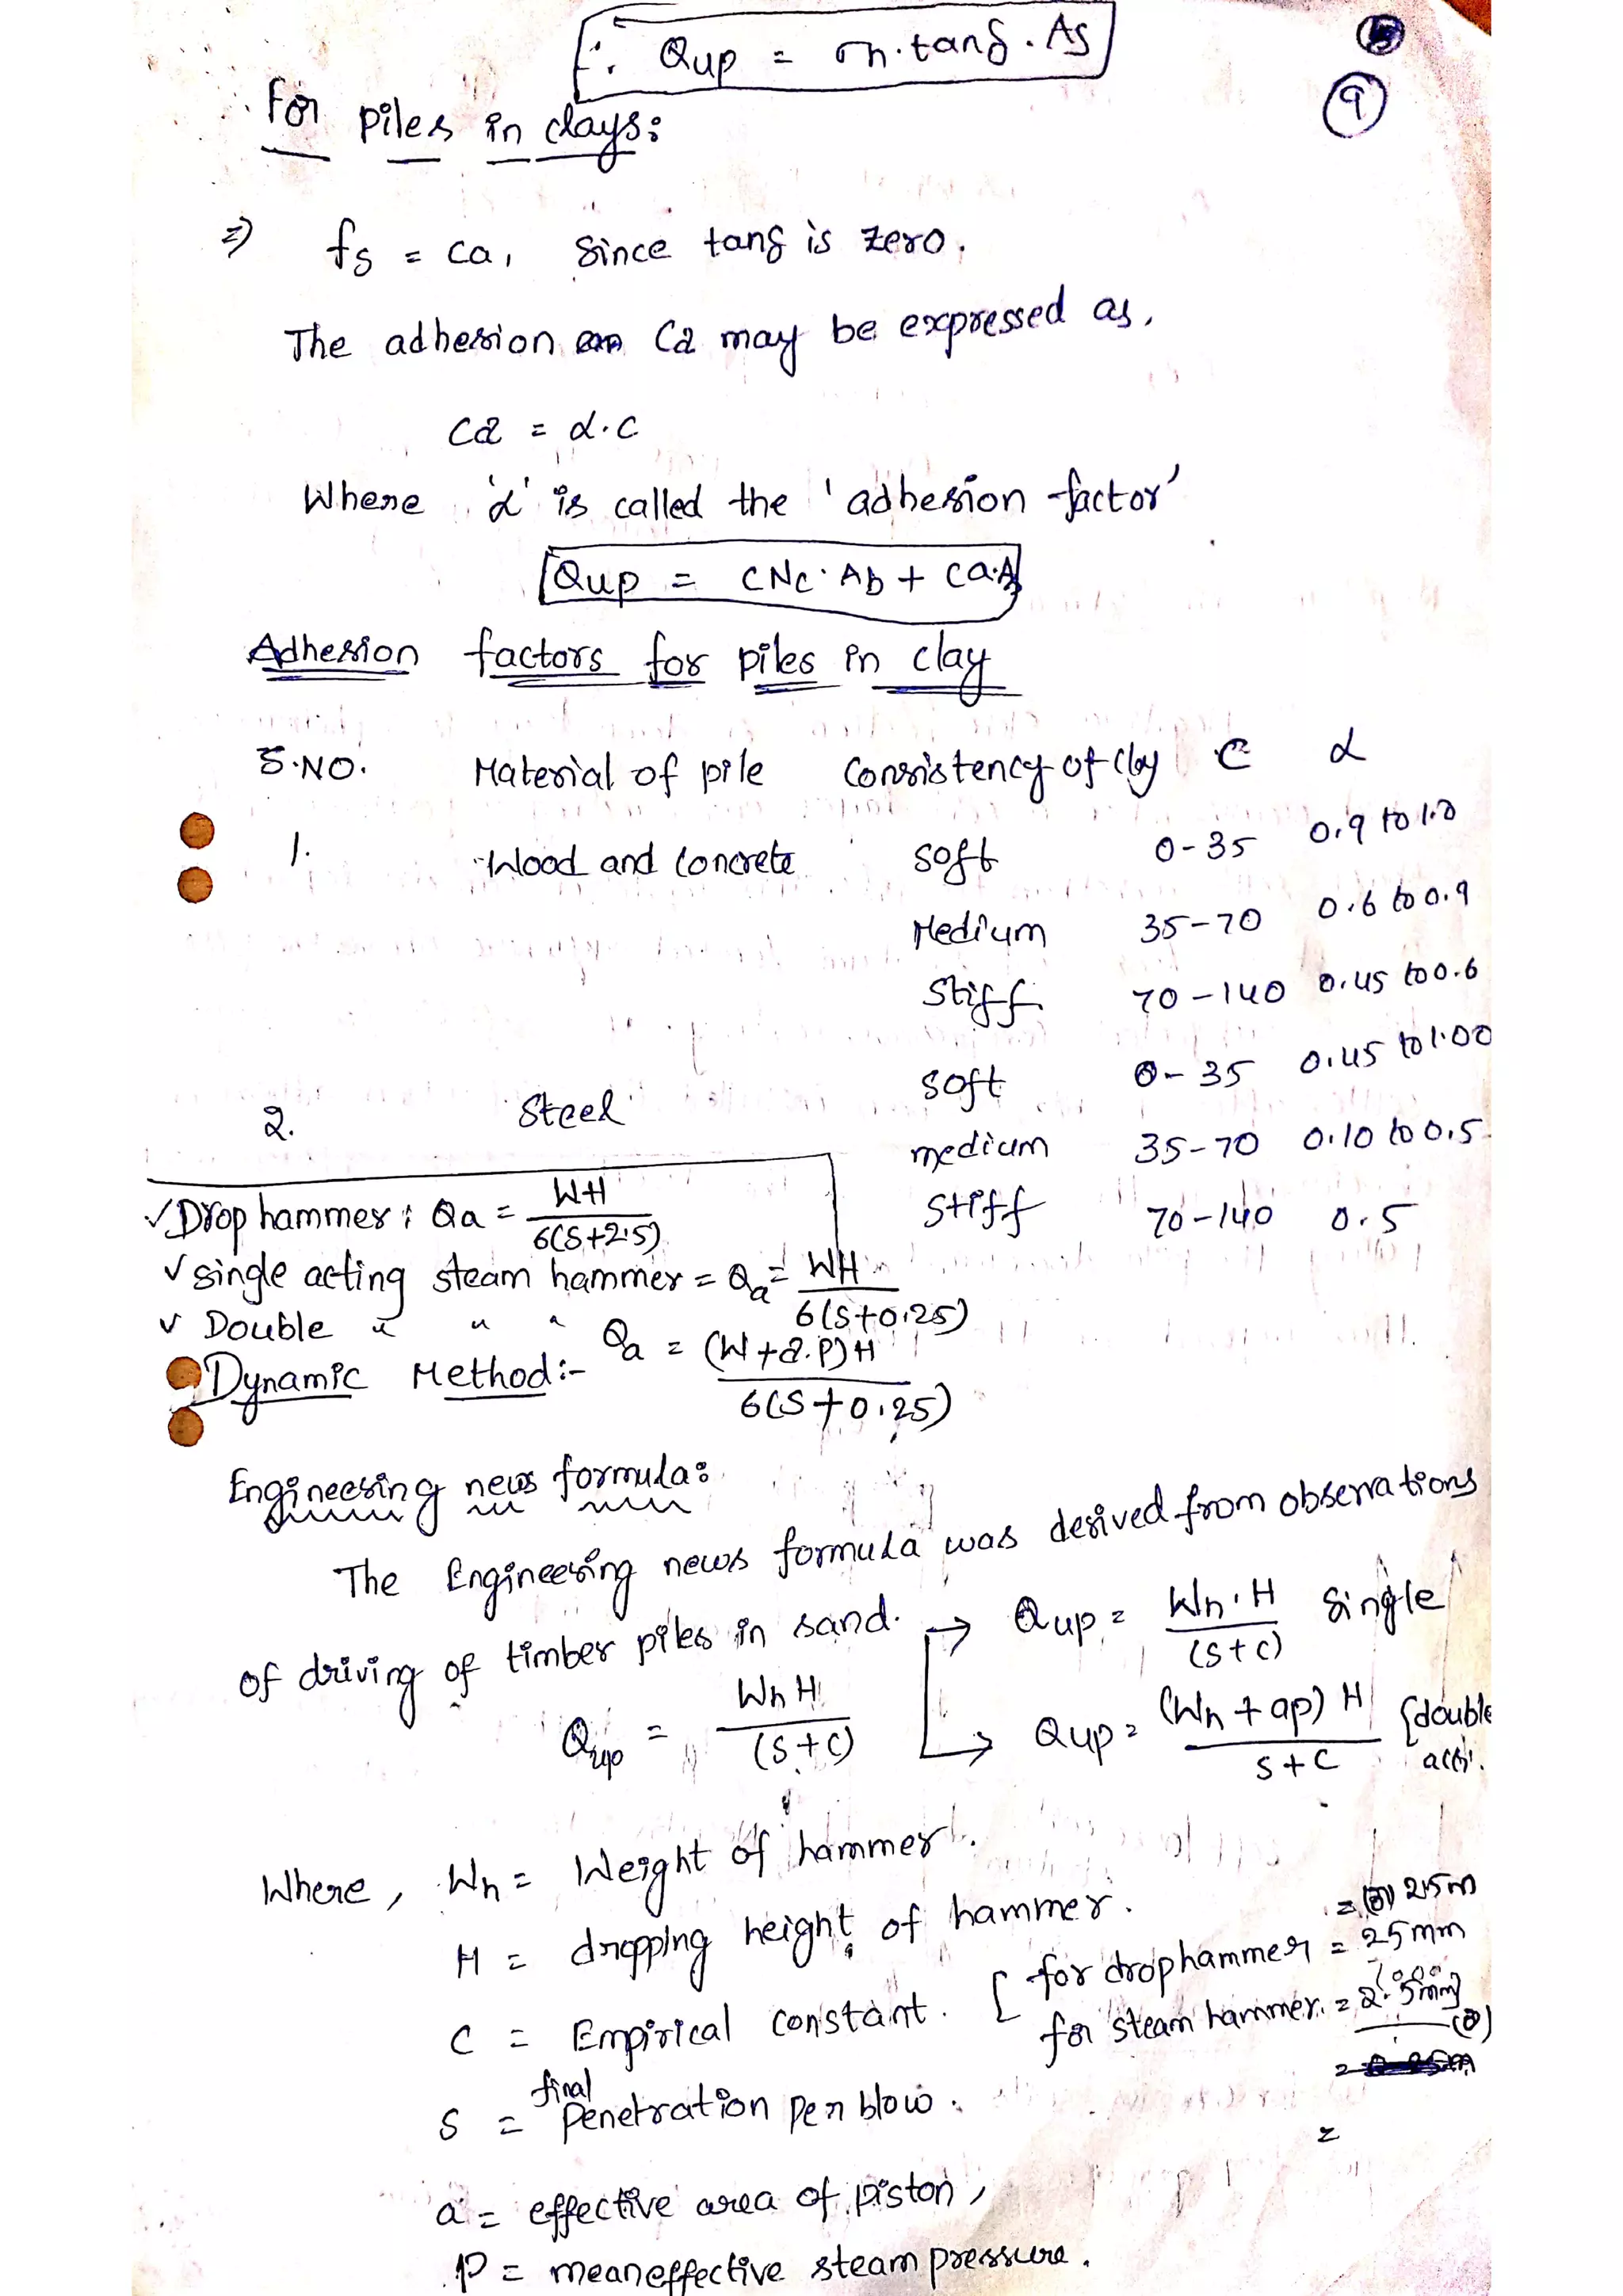 ∴ Qup = σh.tanδ.As
9
For piles in clays:
⇒ fs = ca, Since tanδ is zero.
The adhesion Ca may be expressed as,
Ca = α.c
Where 'α' is called the 'adhesion factor'
Qup = CNc.Ab + Ca.As
Adhesion factors for piles in clay
S.NO. Material of pile Consistency of clay C α
1. Wood and Concrete Soft 0-35 0.9 to 1.0
Medium 35-70 0.6 to 0.9
Stiff 70-140 0.45 to 0.6
2. Steel soft 0-35 0.45 to 1.00
medium 35-70 0.10 to 0.5
Stiff 70-140 0.5
✓ Drop hammer: Qa = WH / 6(S+2.5)
✓ single acting steam hammer = Qa = WH / 6(S+0.25)
✓ Double " " " Qa = (W+a.P)H / 6(S+0.25)
Dynamic Method:-
Engineering news formula:
The Engineering news formula was derived from observations
of driving of timber piles in sand. → Qup = Wh.H / (S+C) Single
Qup = Wh H / (S+C) → Qup = (Wh + ap) H / S+C {double
Where, Wh = Weight of hammer.
H = dropping height of hammer.
C = Empirical constant. [ for drop hammer = 25mm
for steam hammer = 2.5mm
S = final penetration per blow.
a = effective area of piston,
P = mean effective steam pressure.